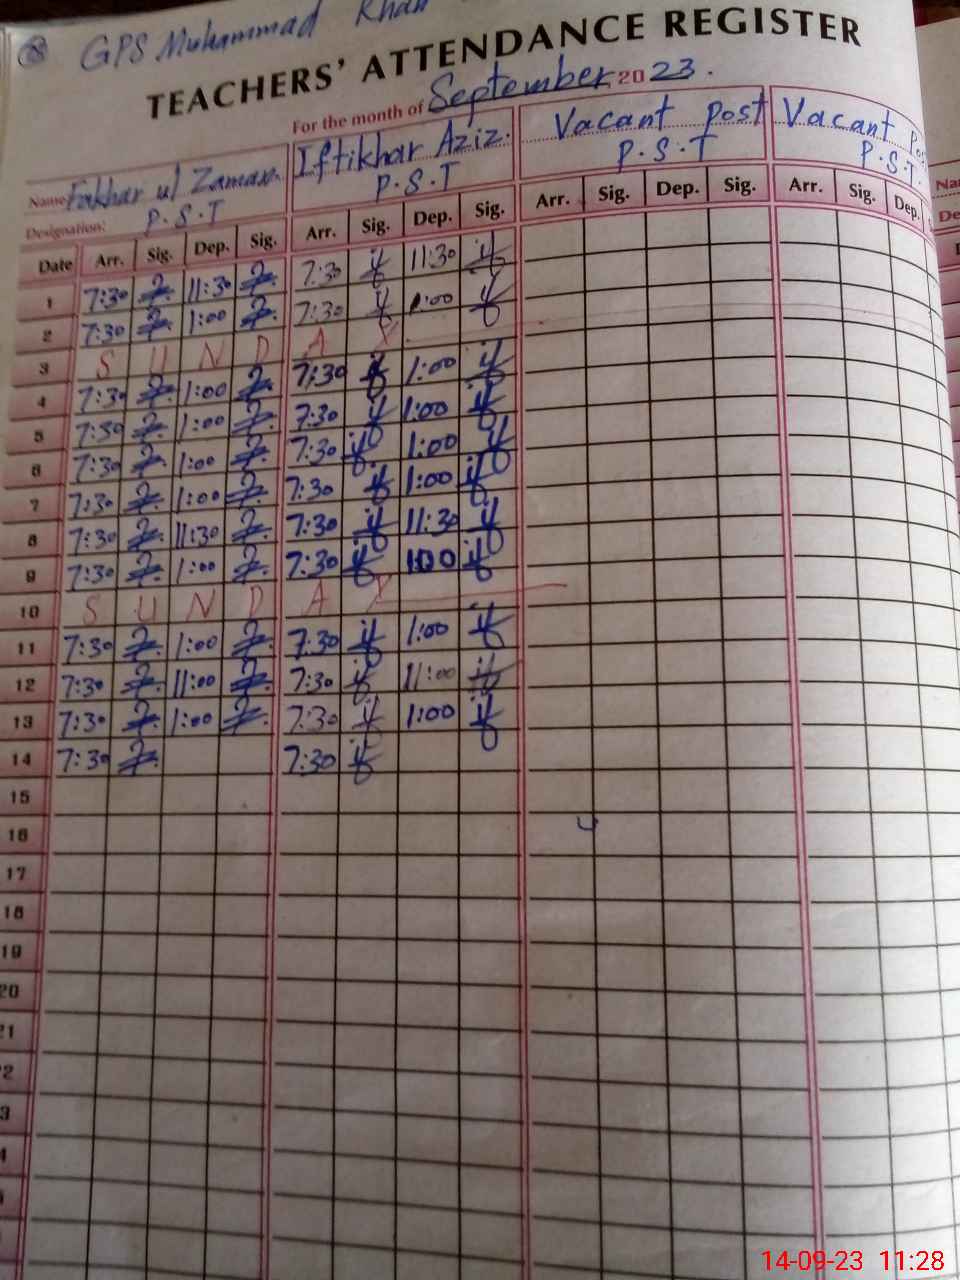 GPS Muhammad Khan
TEACHERS' ATTENDANCE REGISTER
For the month of September 2023.
Name Fakhar ul Zaman. Iftikhar Aziz. Vacant Post Vacant
Designation: P.S.T P.S.T P.S.T P.S.T.
Date Arr. Sig. Dep. Sig. Arr. Sig. Dep. Sig. Arr. Sig. Dep. Sig. Arr. Sig. Dep.
1 7:30 11:30 7:30 11:30
2 7:30 1:00 7:30 1:00
3 S U N D A Y
4 7:30 1:00 7:30 1:00
5 7:30 1:00 7:30 1:00
6 7:30 1:00 7:30 1:00
7 7:30 1:00 7:30 1:00
8 7:30 11:30 7:30 11:30
9 7:30 1:00 7:30 1:00
10 S U N D A Y
11 7:30 1:00 7:30 1:00
12 7:30 11:00 7:30 11:00
13 7:30 1:00 7:30 1:00
14 7:30 7:30
15
16
17
18
19
20
14-09-23 11:28